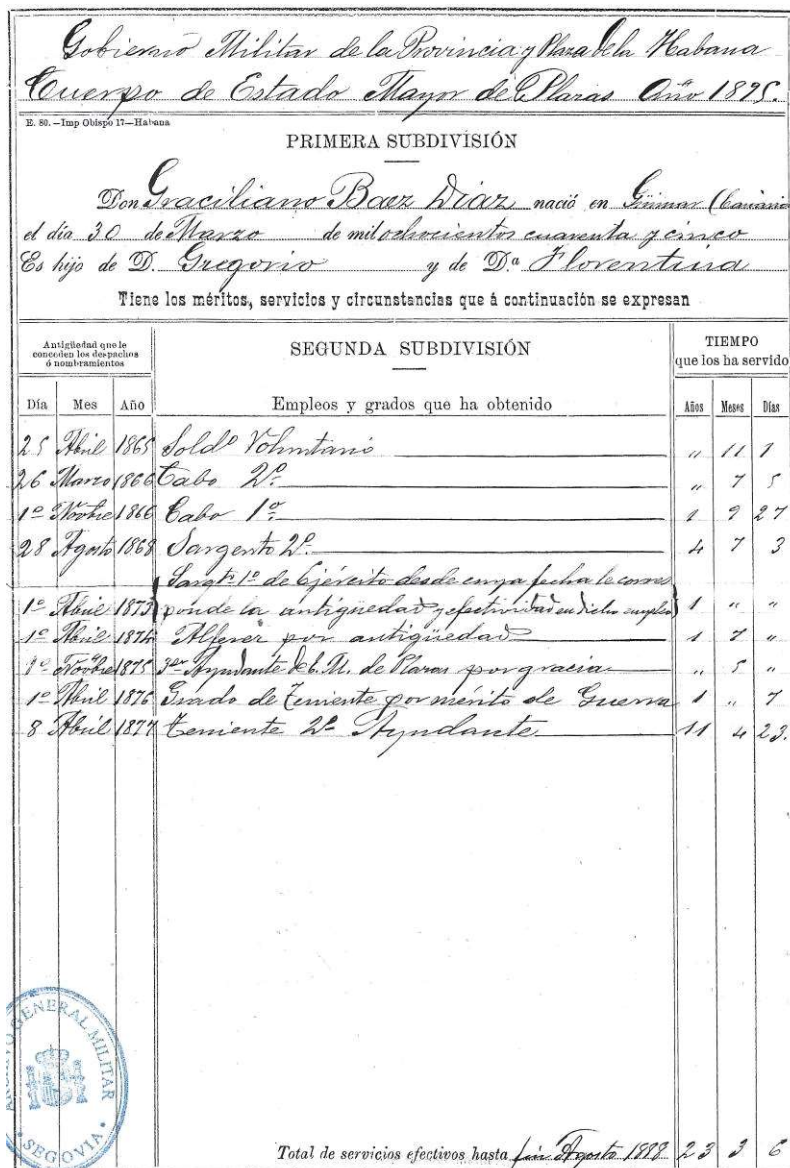 Gobierno Militar de la Provincia y Plaza de la Habana
Cuerpo de Estado Mayor de Plazas Año 1895.
E. 80.—Imp Obispo 17—Habana
PRIMERA SUBDIVISIÓN
Don Graciliano Baez Diaz nació en Güimar (Canarias
el día 30 de Marzo de mil ochocientos cuarenta y cinco
Es hijo de D. Gregorio y de Dª Florentina
Tiene los méritos, servicios y circunstancias que á continuación se expresan
Antigüedad que le concoden los despachos ó nombramientos
SEGUNDA SUBDIVISIÓN
TIEMPO que los ha servido
Día Mes Año Empleos y grados que ha obtenido Años Meses Días
25 Abril 1865 Soldº Voluntario " 11 1
26 Marzo 1866 Cabo 2º " 7 5
1º Novbre 1866 Cabo 1º 1 9 27
28 Agosto 1868 Sargento 2º 4 7 3
Sargto 1º de Ejército desde cuya fecha le corres
1º Abril 1873 ponde la antigüedad y efectividad en dicho empleo 1 " "
1º Abril 1874 Alferez por antigüedad 1 7 "
1º Novbre 1875 3er Ayudante de E. M. de Plazas por gracia " 5 "
1º Abril 1876 Grado de Teniente por mérito de Guerra 1 " 7
8 Abril 1877 Teniente 2º Ayudante 11 4 23.
ARCHIVO GENERAL MILITAR
· SEGOVIA ·
Total de servicios efectivos hasta fin Agosto 1888 23 3 6